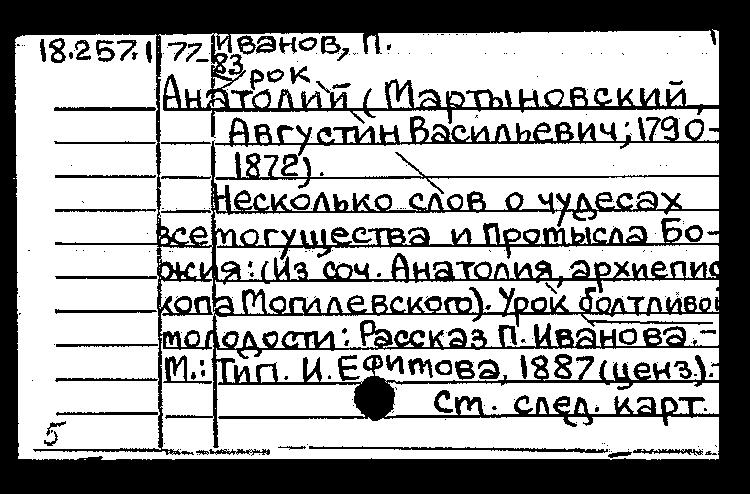 18.257.1 77- Иванов, П.
83 Урок
Анатолий (Мартыновский,
Августин Васильевич; 1790-
1872).
Несколько слов о чудесах
всемогущества и Промысла Бо-
жия: (Из соч. Анатолия, архиепис
копа Могилевского). Урок болтливой
молодости: Рассказ П. Иванова.-
М.: Тип. И. Ефимова, 1887 (ценз.).-
См. след. карт.
5